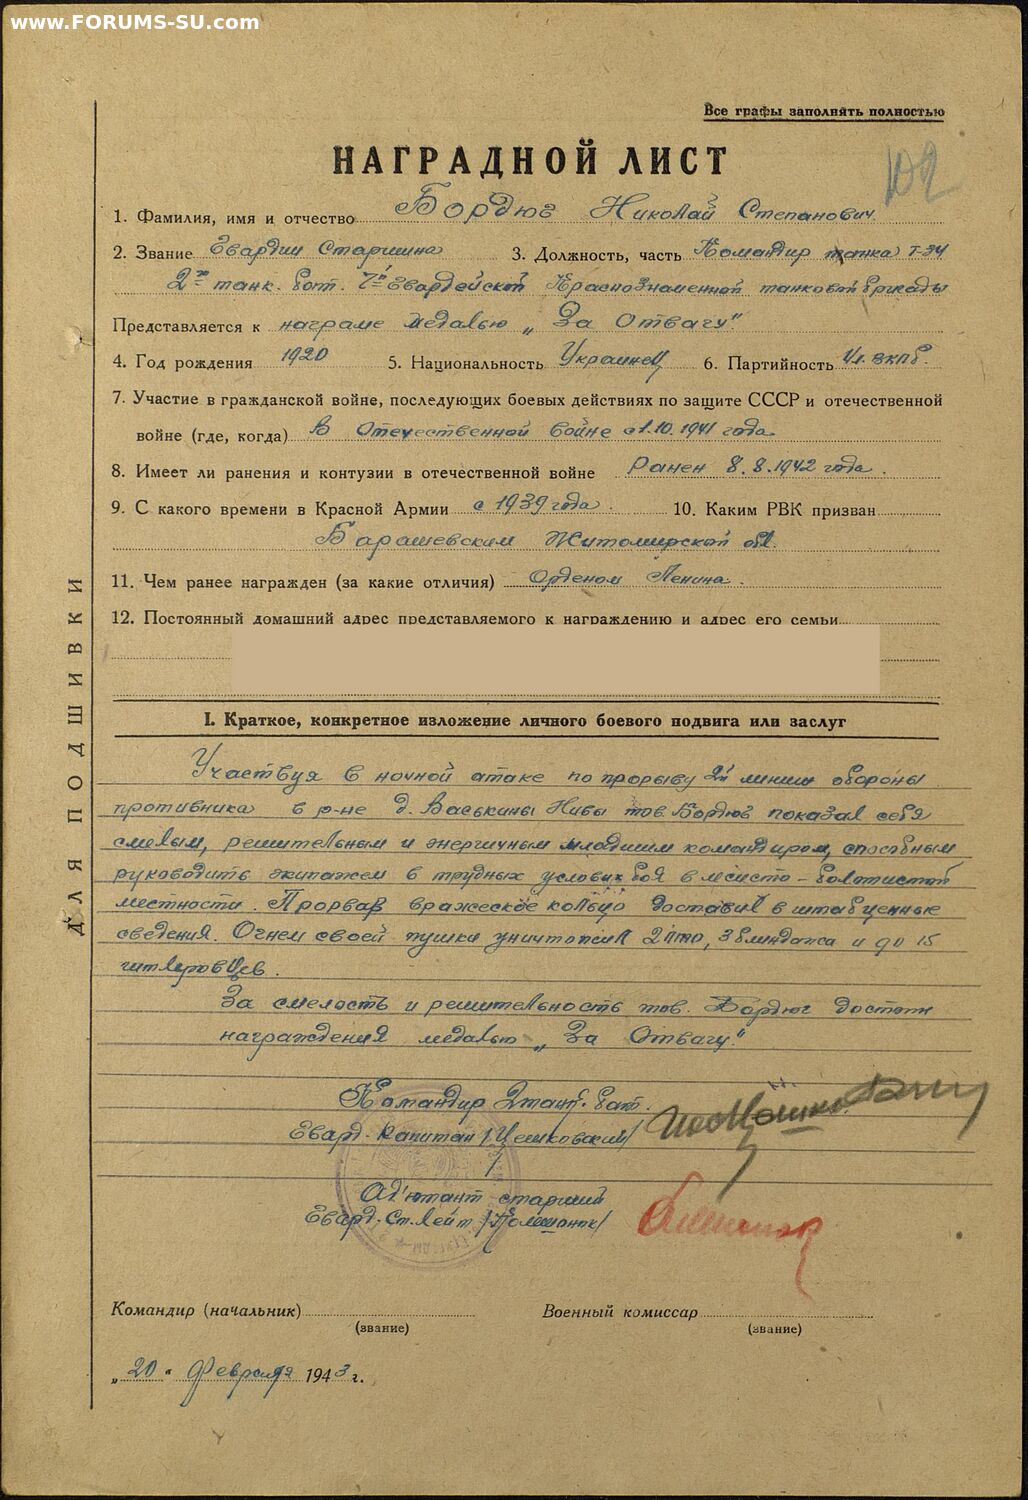 www.FORUMS-SU.com
Все графы заполнять полностью
102
НАГРАДНОЙ ЛИСТ
1. Фамилия, имя и отчество Бордюг Николай Степанович
2. Звание Гвардии Старшина 3. Должность, часть Командир танка Т-34
2го танк. бат. 7й Гвардейской Краснознаменной танковой бригады
Представляется к награде медалью „За Отвагу"
4. Год рождения 1920 5. Национальность Украинец 6. Партийность Чл. ВКПб.
7. Участие в гражданской войне, последующих боевых действиях по защите СССР и отечественной
войне (где, когда) В Отечественной войне с 1.10.1941 года
8. Имеет ли ранения и контузии в отечественной войне Ранен 8.8.1942 года.
9. С какого времени в Красной Армии с 1939 года. 10. Каким РВК призван
Барашевским Житомирской обл.
11. Чем ранее награжден (за какие отличия) Орденом Ленина.
12. Постоянный домашний адрес представляемого к награждению и адрес его семьи
ДЛЯ ПОДШИВКИ
I. Краткое, конкретное изложение личного боевого подвига или заслуг
Участвуя в ночной атаке по прорыву 2й линии обороны
противника в р-не д. Васькины Нивы тов. Бордюг показал себя
смелым, решительным и энергичным младшим командиром, способным
руководить экипажем в трудных условиях боя в лесисто-болотистой
местности. Прорвав вражеское кольцо доставил в штаб ценные
сведения. Огнем своей пушки уничтожил 2 пто, 3 блиндажа и до 15
гитлеровцев.
За смелость и решительность тов. Бордюг достоин
награждения медалью „За Отвагу."
Командир 2 танк. бат.
Гвард. Капитан /Цешковский/
Ад'ютант старший
Гвард. Ст. Лейт /
Командир (начальник) Военный комиссар
(звание) (звание)
„20" Февраля 1943 г.